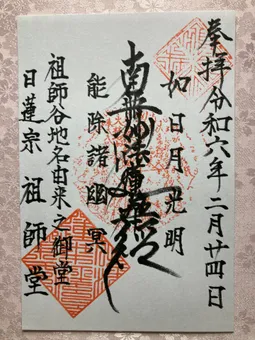 奉拝 令和六年二月廿四日
如日月光明
南無妙法蓮華経
能除諸幽冥
祖師谷地名由来之御堂
日蓮宗 祖師堂